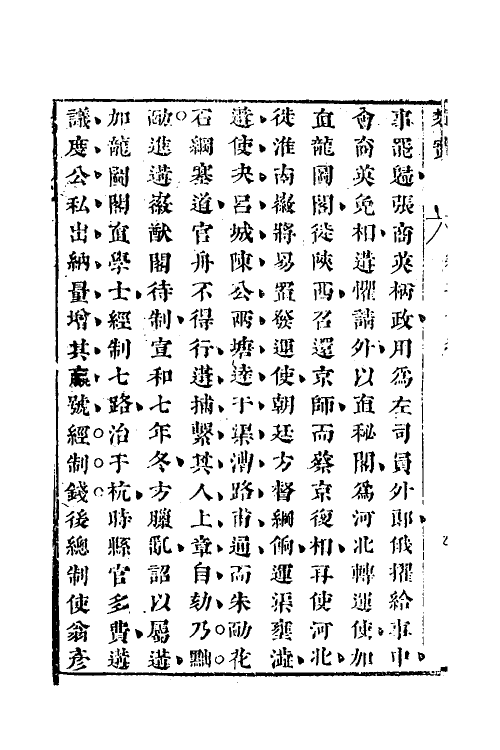 事罷歸張商英柄政用為左司員外郎俄擢給事中
會商英免相遘懼請外以直秘閣為河北轉運使加
直龍圖閣徙陝西召還京師而蔡京復相再使河北
徙淮南徽將易置發運使朝廷方督綱餉運渠壅澁
遘使夬呂城陳公兩塘達于渠漕路甫通而朱勔花
石綱塞道官舟不得行遘捕繫其人上章自劾乃黜
勔進遘徽猷閣待制宣和七年冬方臘亂詔以屬遘
加龍圖閣直學士經制七路治于杭時縣官多費遘
議度公私出納量增其贏號經制錢後總制使翁彥